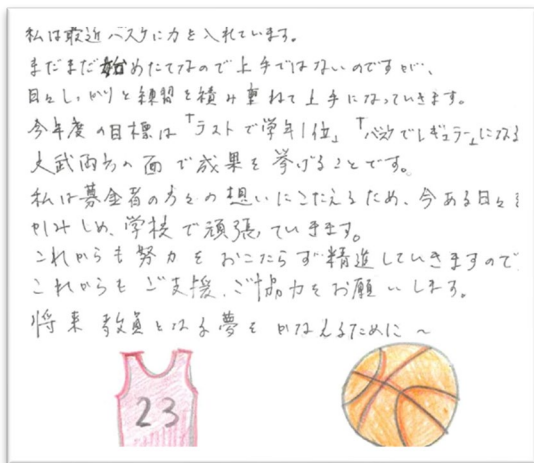 私は最近バスケに力を入れています。
まだまだ始めたてなので上手ではないのですが、
日々しっかりと練習を積み重ねて上手になっていきます。
今年度の目標は「テストで学年1位」「バスケでレギュラー」になる
文武両方の面で成果を挙げることです。
私は募金者の方々の想いにこたえるため、今ある日々を
かみしめ、学校で頑張っていきます。
これからも努力をおこたらず精進していきますので
これからもご支援、ご協力をお願いします。
将来教員となる夢をかなえるために〜
23